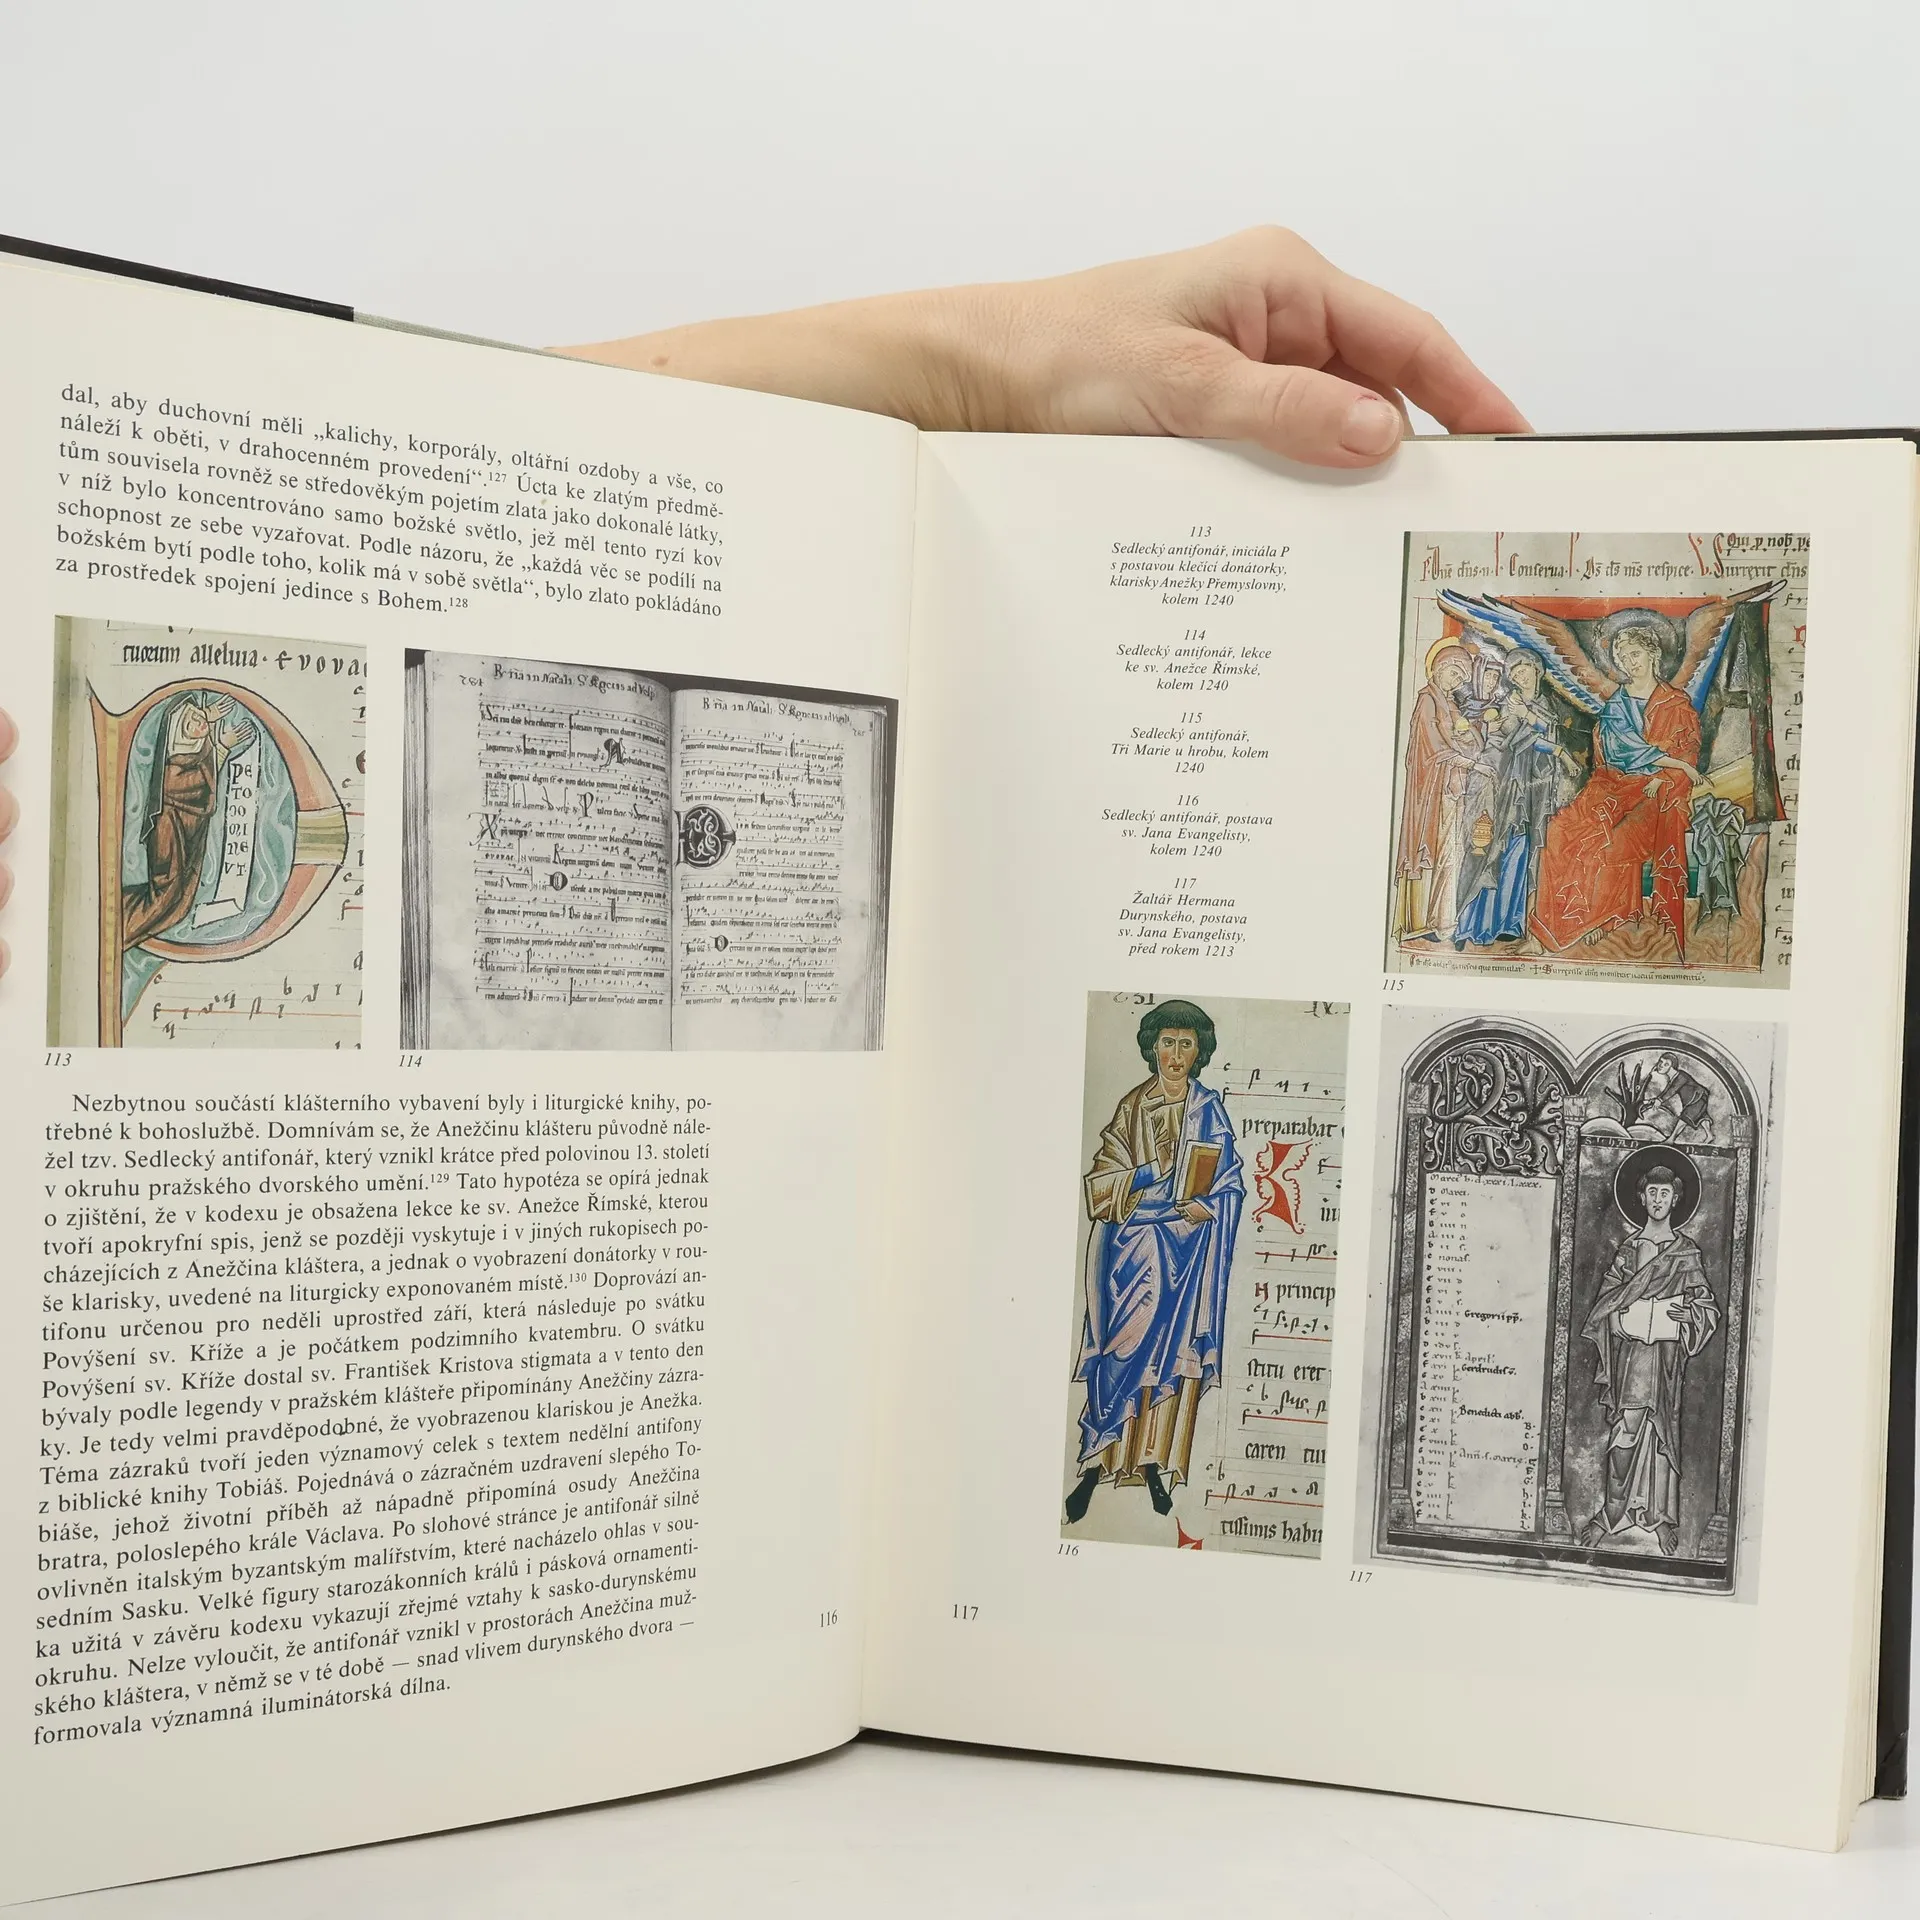 dal, aby duchovní měli „kalichy, korporály, oltářní ozdoby a vše, co
náleží k oběti, v drahocenném provedení“.127 Úcta ke zlatým předmě-
tům souvisela rovněž se středověkým pojetím zlata jako dokonalé látky,
v níž bylo koncentrováno samo božské světlo, jež měl tento ryzí kov
schopnost ze sebe vyzařovat. Podle názoru, že „každá věc se podílí na
božském bytí podle toho, kolik má v sobě světla“, bylo zlato pokládáno
za prostředek spojení jedince s Bohem.128
alleluia
113
114
Nezbytnou součástí klášterního vybavení byly i liturgické knihy, po-
třebné k bohoslužbě. Domnívám se, že Anežčinu klášteru původně nále-
žel tzv. Sedlecký antifonář, který vznikl krátce před polovinou 13. století
v okruhu pražského dvorského umění.129 Tato hypotéza se opírá jednak
o zjištění, že v kodexu je obsažena lekce ke sv. Anežce Římské, kterou
tvoří apokryfní spis, jenž se později vyskytuje i v jiných rukopisech po-
cházejících z Anežčina kláštera, a jednak o vyobrazení donátorky v rou-
še klarisky, uvedené na liturgicky exponovaném místě.130 Doprovází an-
tifonu určenou pro neděli uprostřed září, která následuje po svátku
Povýšení sv. Kříže a je počátkem podzimního kvatembru. O svátku
Povýšení sv. Kříže dostal sv. František Kristova stigmata a v tento den
bývaly podle legendy v pražském klášteře připomínány Anežčiny zázra-
ky. Je tedy velmi pravděpodobné, že vyobrazenou klariskou je Anežka.
Téma zázraků tvoří jeden významový celek s textem nedělní antifony
z biblické knihy Tobiáš. Pojednává o zázračném uzdravení slepého To-
biáše, jehož životní příběh až nápadně připomíná osudy Anežčina
bratra, poloslepého krále Václava. Po slohové stránce je antifonář silně
ovlivněn italským byzantským malířstvím, které nacházelo ohlas v sou-
sedním Sasku. Velké figury starozákonních králů i pásková ornamenti-
ka užitá v závěru kodexu vykazují zřejmé vztahy k sasko-durynskému
okruhu. Nelze vyloučit, že antifonář vznikl v prostorách Anežčina muž-
ského kláštera, v němž se v té době — snad vlivem durynského dvora —
formovala významná iluminátorská dílna.
116
113
Sedlecký antifonář, iniciála P
s postavou klečící donátorky,
klarisky Anežky Přemyslovny,
kolem 1240
114
Sedlecký antifonář, lekce
ke sv. Anežce Římské,
kolem 1240
115
Sedlecký antifonář,
Tři Marie u hrobu, kolem
1240
116
Sedlecký antifonář, postava
sv. Jana Evangelisty,
kolem 1240
117
Žaltář Hermana
Durynského, postava
sv. Jana Evangelisty,
před rokem 1213
115
preparabat
principi
caren
116
117
117